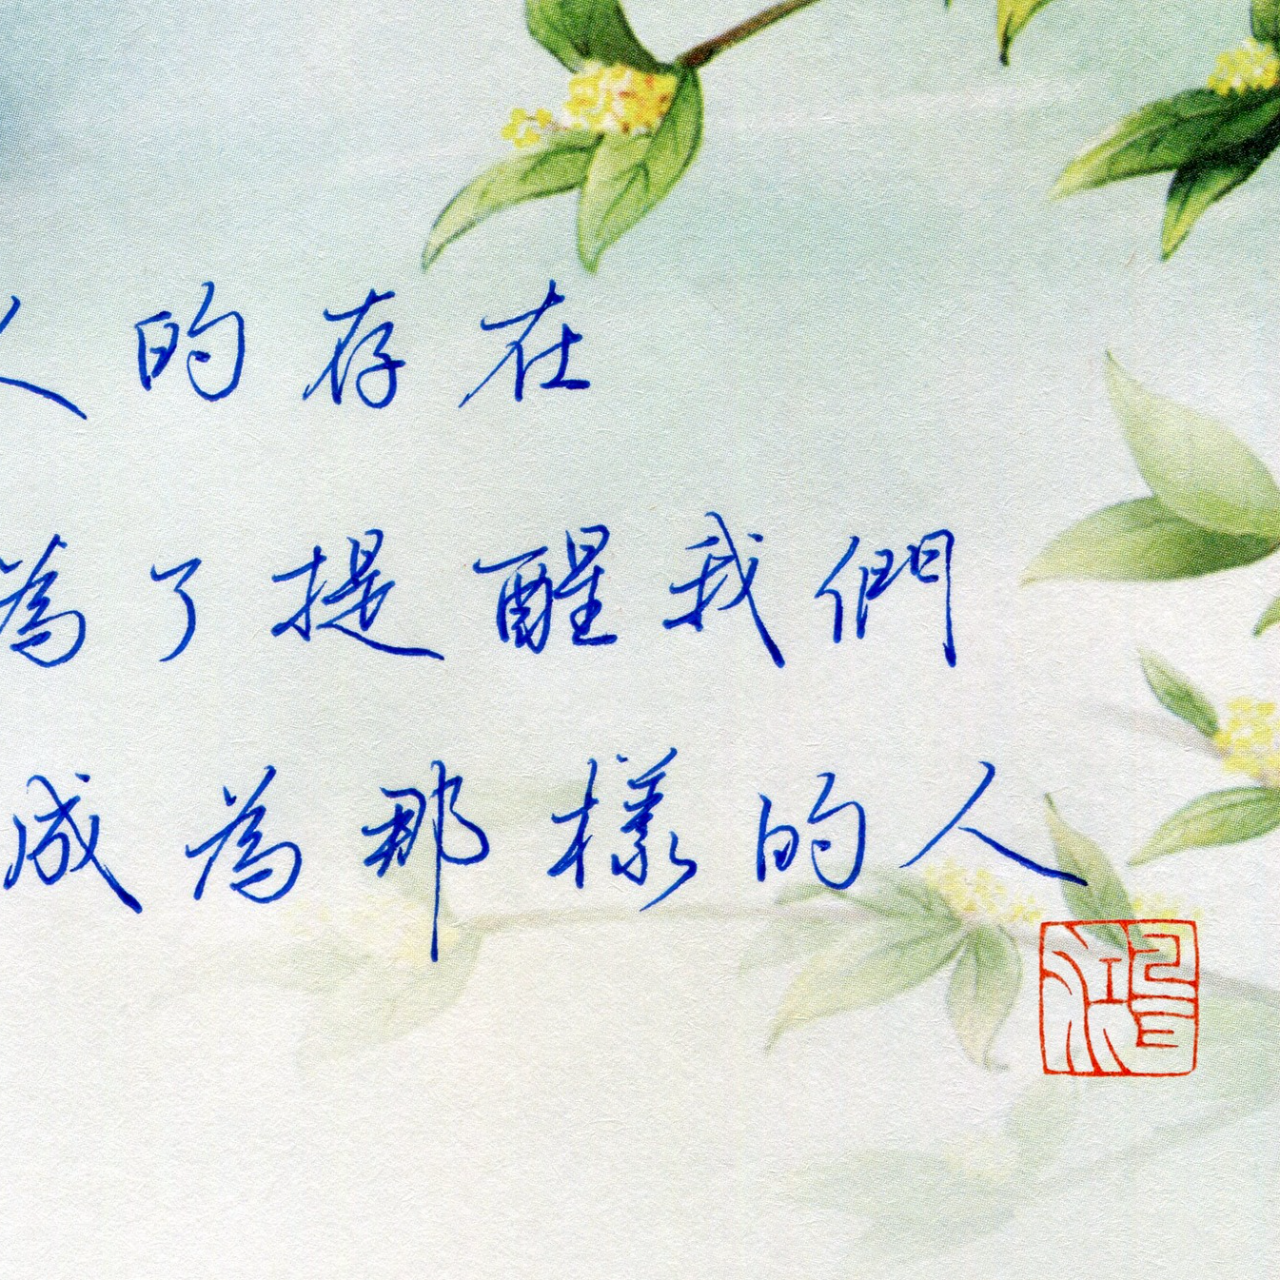 人的存在
為了提醒我們
成為那樣的人